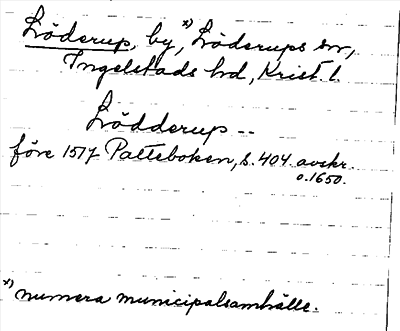 Löderup, by, x) Löderups sn,
Ingelstads hd, Krist. l.
Lödderup --
före 1517 Palteboken, s. 404. avskr.
o. 1650.
x) numera municipalsamhälle.